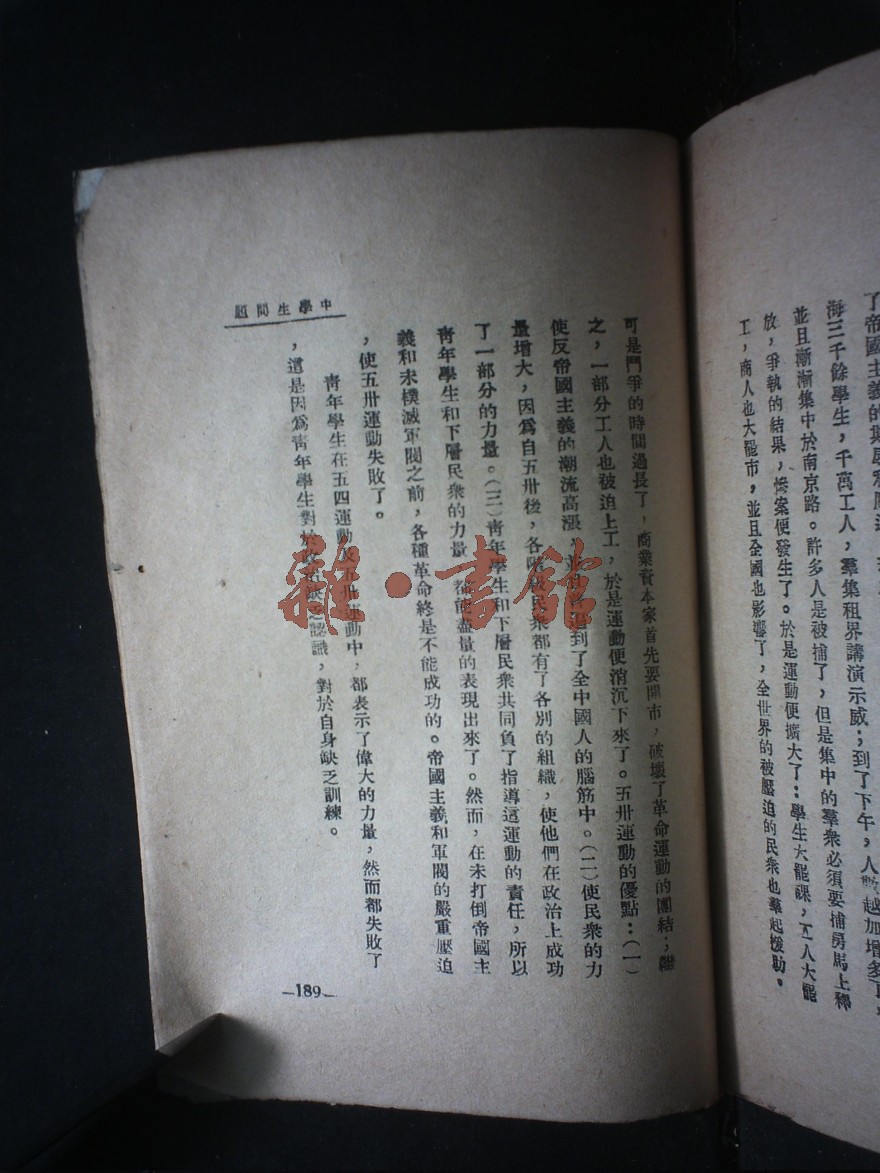 海三千餘學生，千萬工人，羣集租界講演示威；到了下午，人數越加增多了
並且漸漸集中於南京路。許多人是被捕了，但是集中的羣衆必須要捕房馬上釋
放，爭執的結果，慘案便發生了。於是運動便擴大了：學生大罷課，工人大罷
工，商人也大罷市，並且全國也影響了，全世界的被壓迫的民衆也羣起援助。
可是鬥爭的時間過長了，商業資本家首先要開市，破壞了革命運動的團結；繼
之，一部分工人也被迫上工，於是運動便消沉下來了。五卅運動的優點：（一）
使反帝國主義的潮流高漲，並且到了全中國人的腦筋中。（二）使民衆的力
量增大，因爲自五卅後，各階級民衆都有了各別的組織，使他們在政治上成功
了一部分的力量。（三）靑年學生和下層民衆共同負了指導這運動的責任，所以
靑年學生和下層民衆的力量都能盡量的表現出來了。然而，在未打倒帝國主
義和未撲滅軍閥之前，各種革命終是不能成功的。帝國主義和軍閥的嚴重壓迫
，使五卅運動失敗了。
靑年學生在五四運動及五卅運動中，都表示了偉大的力量，然而都失敗了
，這是因爲靑年學生對於政治缺乏認識，對於自身缺乏訓練。
中學生問題
—189—
雜·書館